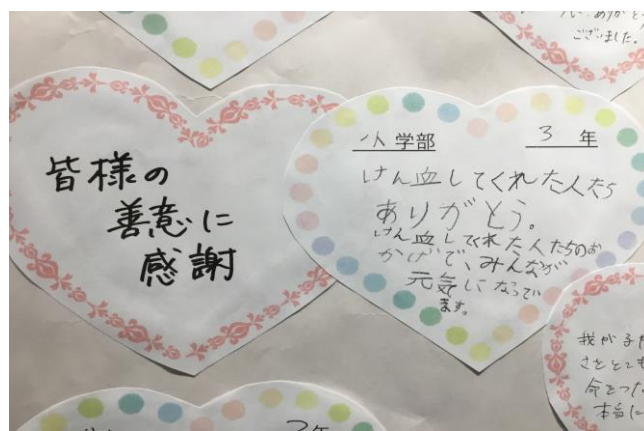 ございました。
皆様の
善意に
感謝
小学部 3年
けん血してくれた人たち
ありがとう。
けん血してくれた人たちのお
かげで、みんなが
元気になってい
ます。
我が子
命をつ
本当に